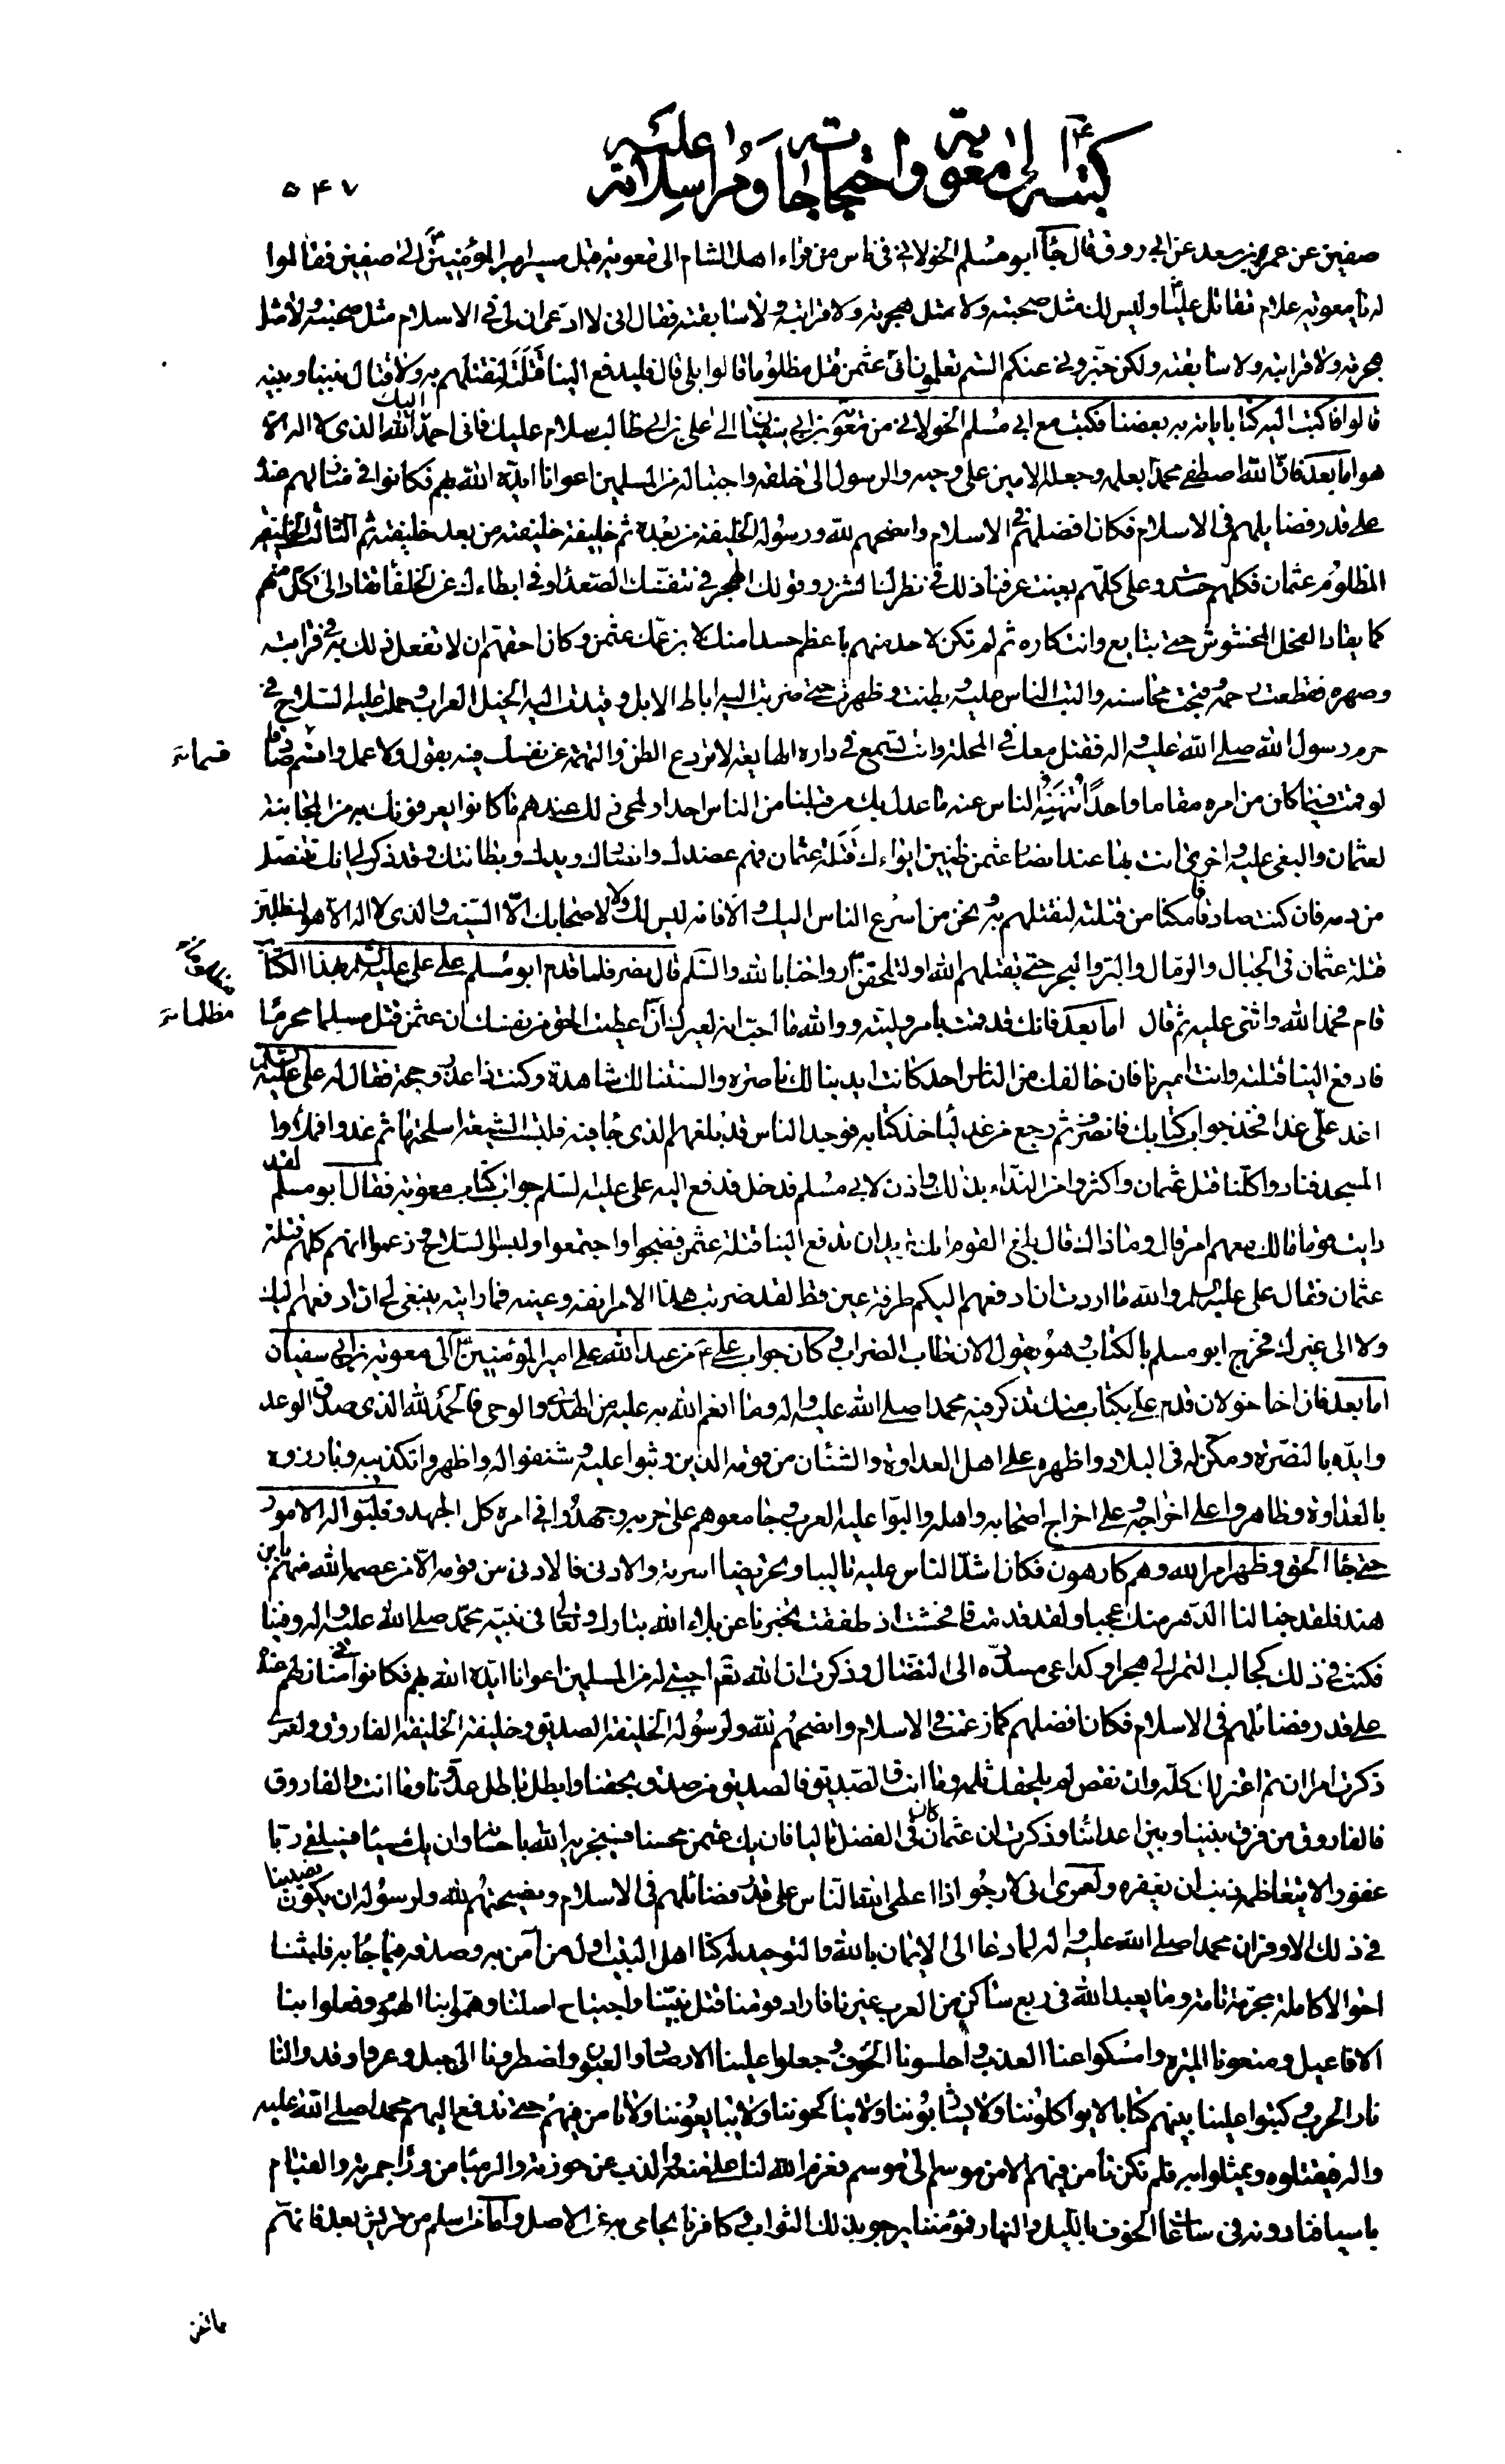 كتبه ع الى معوية واحتجاجاته ومراسلاته عليه
٥٤٧
صفين عن عمر بن سعد عن ابي روق قال جاء ابو مسلم الخولاني في ناس من قراء اهل الشام الى معوية قبل مسير امير المؤمنين الى صفين فقالوا
له يا معوية علام تقاتل عليا وليس لك مثل صحبته ولا مثل هجرته ولا قرابته ولا سابقته فقال اني لا ادعي ان لي في الاسلام مثل صحبته ولا مثل
هجرته ولا قرابته ولا سابقته ولكن خبروني عنكم الستم تعلمون ان عثمن قتل مظلوما قالوا بلى قال فليدفع الينا قتلته لنقتلهم به ولا قتال بيننا وبينه
قالوا فاكتب اليه كتابا ياته به بعضنا فكتب مع ابي مسلم الخولاني من معوية بن ابي سفين الى علي بن ابي طالب سلام عليك فاني احمد اليك الله الذي لا اله الا
هو اما بعد فان الله اصطفى محمدا بعلمه وجعله الامين على وحيه والرسول الى خلقه واجتبا له من المسلمين اعوانا ايده الله بهم فكانوا في منازلهم عنده
على قدر فضايلهم في الاسلام فكان افضلهم في الاسلام وانصحهم لله ورسوله الخليفة من بعده ثم خليفة خليفته من بعد خليفته ثم الثالث الخليفة
المظلوم عثمان فكلهم حسدت وعلى كلهم بغيت عرفنا ذلك في نظرك الشزر وقولك الهجر في تنفسك الصعداء وفي ابطاءك عن الخلفا تقاد الى كل منهم
كما يقاد الفحل المخشوش حتى تبايع وانت كاره ثم لم تكن لاحد منهم باعظم حسدا منك لابن عمك عثمن وكان احقهم ان لا تفعل ذلك به في قرابته
وصهره فقطعت رحمه وقبحت محاسنه والبت الناس عليه وبطنت وظهرت حتى ضربت اليه اباط الابل وقيدت اليه الخيل العراب وحمل عليه السلاح في
حرم رسول الله صلى الله عليه واله فقتل معك في المحلة وانت تسمع في داره الهايعة لا تردع الظن والتهمة عن نفسك فيه بقول ولا عمل واقسم صادقا
قسما خ
لو قمت فيما كان من امره مقاما واحدا تنهنه الناس عنه ما عدل بك من قبلنا من الناس احدا ولمحى ذلك عندهم ما كانوا يعرفونك به من المجانبة
لعثمان والبغي عليه واخرى انت بها عند انصار عثمن ظنين ايواءك قتلة عثمان فهم عضدك وانصارك ويدك وبطانتك وقد ذكر لي انك تتنصل
من دمه فان كنت صادقا فامكنا من قتلته لنقتلهم به ونحن من اسرع الناس اليك والا فانه ليس لك ولا لاصحابك الا السيف والذي لا اله الا هو لنطلبن
قتلة عثمان في الجبال والرمال والبر والبحر حتى يقتلهم الله او لتلحقن ارواحنا بالله والسلم قال نصر فلما قدم ابو مسلم على علي عليه السلم بهذا الكتاب
قام فحمد الله واثنى عليه ثم قال اما بعد فانك قد قمت بامر وليته ووالله ما احب انه لغيرك ان اعطيت الحق من نفسك ان عثمن قتل مسلما محرما
مظلما خ
فادفع الينا قتلته وانت اميرنا فان خالفك من الناس احد كانت ايدينا لك ناصرة والسنتنا لك شاهدة وكنت ذا عذر وحجة فقال له علي عليه السلم
اغد علي غدا فخذ جواب كتابك فانصرف ثم رجع من غد لياخذ كتابه فوجد الناس قد بلغهم الذي جاء فيه فلبست الشيعة اسلحتها ثم غدوا فملاوا
المسجد فنادوا كلنا قتل عثمان واكثروا من النداء بذلك واذن لابي مسلم فدخل فدفع اليه علي عليه السلم جواب كتاب معوية فقال ابو مسلم لقد
رايت قوما ما لك معهم امر قال وما ذاك قال بلغ القوم انك تريد ان تدفع الينا قتلة عثمن فضجوا واجتمعوا ولبسوا السلاح وزعموا انهم كلهم قتلة
عثمان فقال علي عليه السلم والله ما اردت ان ادفعهم اليكم طرفة عين قط لقد ضربت هذا الامر انفه وعينه فما رايته ينبغي لي ان ادفعهم اليك
ولا الى غيرك فخرج ابو مسلم بالكتاب وهو يقول الان طاب الضراب وكان جواب علي ع من عبد الله علي امير المؤمنين الى معوية بن ابي سفيان
اما بعد فان اخا خولان قدم علي بكتاب منك تذكر فيه محمدا صلى الله عليه واله وما انعم الله به عليه من الهدى والوحي فالحمد لله الذي صدقه الوعد
وايده بالنصرة ومكن له في البلاد واظهره على اهل العداوة والشنئان من قومه الذين وثبوا عليه وشنفوا له واظهروا تكذيبه وبارزوه
بالعداوة وظاهروا على اخراجه وعلى اخراج اصحابه واهله والبوا عليه العرب وجامعوهم على حربه وجهدوا في امره كل الجهد وقلبوا له الامور
حتى جاء الحق وظهر امر الله وهم كارهون فكان اشد الناس عليه تاليبا وتحريضا اسرته والادنى فالادنى من قومه الا من عصمه الله منهم يا بن
هند فلقد خبا لنا الدهر منك عجبا ولقد قدمت فافحشت اذ طفقت تخبرنا عن بلاء الله تبارك وتعالى في نبيه محمد صلى الله عليه واله وفينا
فكنت في ذلك كجالب التمر الى هجر او كداعي مسدده الى النضال وذكرت ان الله تعم اجتبى له من المسلمين اعوانا ايده الله بهم فكانوا في منازلهم عنده
على قدر فضائلهم في الاسلام فكان افضلهم كما زعمت في الاسلام وانصحهم لله ولرسوله الخليفة الصديق وخليفة الخليفة الفاروق ولعمري
ذكرت امرا ان تم اعتزلك كله وان نقص لم يلحقك ثلمه وما انت والصديق فالصديق من صدق بحقنا وابطل باطل عدونا وما انت والفاروق
فالفاروق من فرق بيننا وبين اعدائنا وذكرت ان عثمان كان في الفضل تاليا فان يك عثمن محسنا فسيجزيه الله باحسانه وان يك مسيئا فسيلقى ربا
غفورا لا يتعاظمه ذنب ان يغفره ولعمري اني لارجو اذا اعطى الله الناس على قدر فضائلهم في الاسلام ونصيحتهم لله ولرسوله ان يكون نصيبنا
في ذلك الاوفر ان محمدا صلى الله عليه واله لما دعا الى الايمان بالله والتوحيد له كنا اهل البيت اول من آمن به وصدقه فيما جاء به فلبثنا
احوالا كاملة مجرمة تامة وما يعبد الله في ربع ساكن من العرب غيرنا فاراد قومنا قتل نبينا واجتياح اصلنا وهموا بنا الهموم وفعلوا بنا
الافاعيل ومنعونا الميرة وامسكوا عنا العذب واحلسونا الخوف وجعلوا علينا الارصاد والعيون واضطرونا الى جبل وعر واوقدوا لنا
نار الحرب وكتبوا علينا بينهم كتابا لا يواكلوننا ولا يشاربوننا ولا يناكحوننا ولا يبايعوننا ولا نامن فيهم حتى ندفع اليهم محمدا صلى الله عليه
واله فيقتلوه ويمثلوا به فلم نكن نامن فيهم الا من موسم الى موسم فعزم الله لنا على منعه والذب عن حوزته والرميا من وراء حرمته والقيام
باسيافنا دونه في ساعات الخوف بالليل والنهار فمؤمننا يرجو بذلك الثواب وكافرنا يحامي به عن الاصل واما من اسلم من قريش بعد فانهم
مما نحن